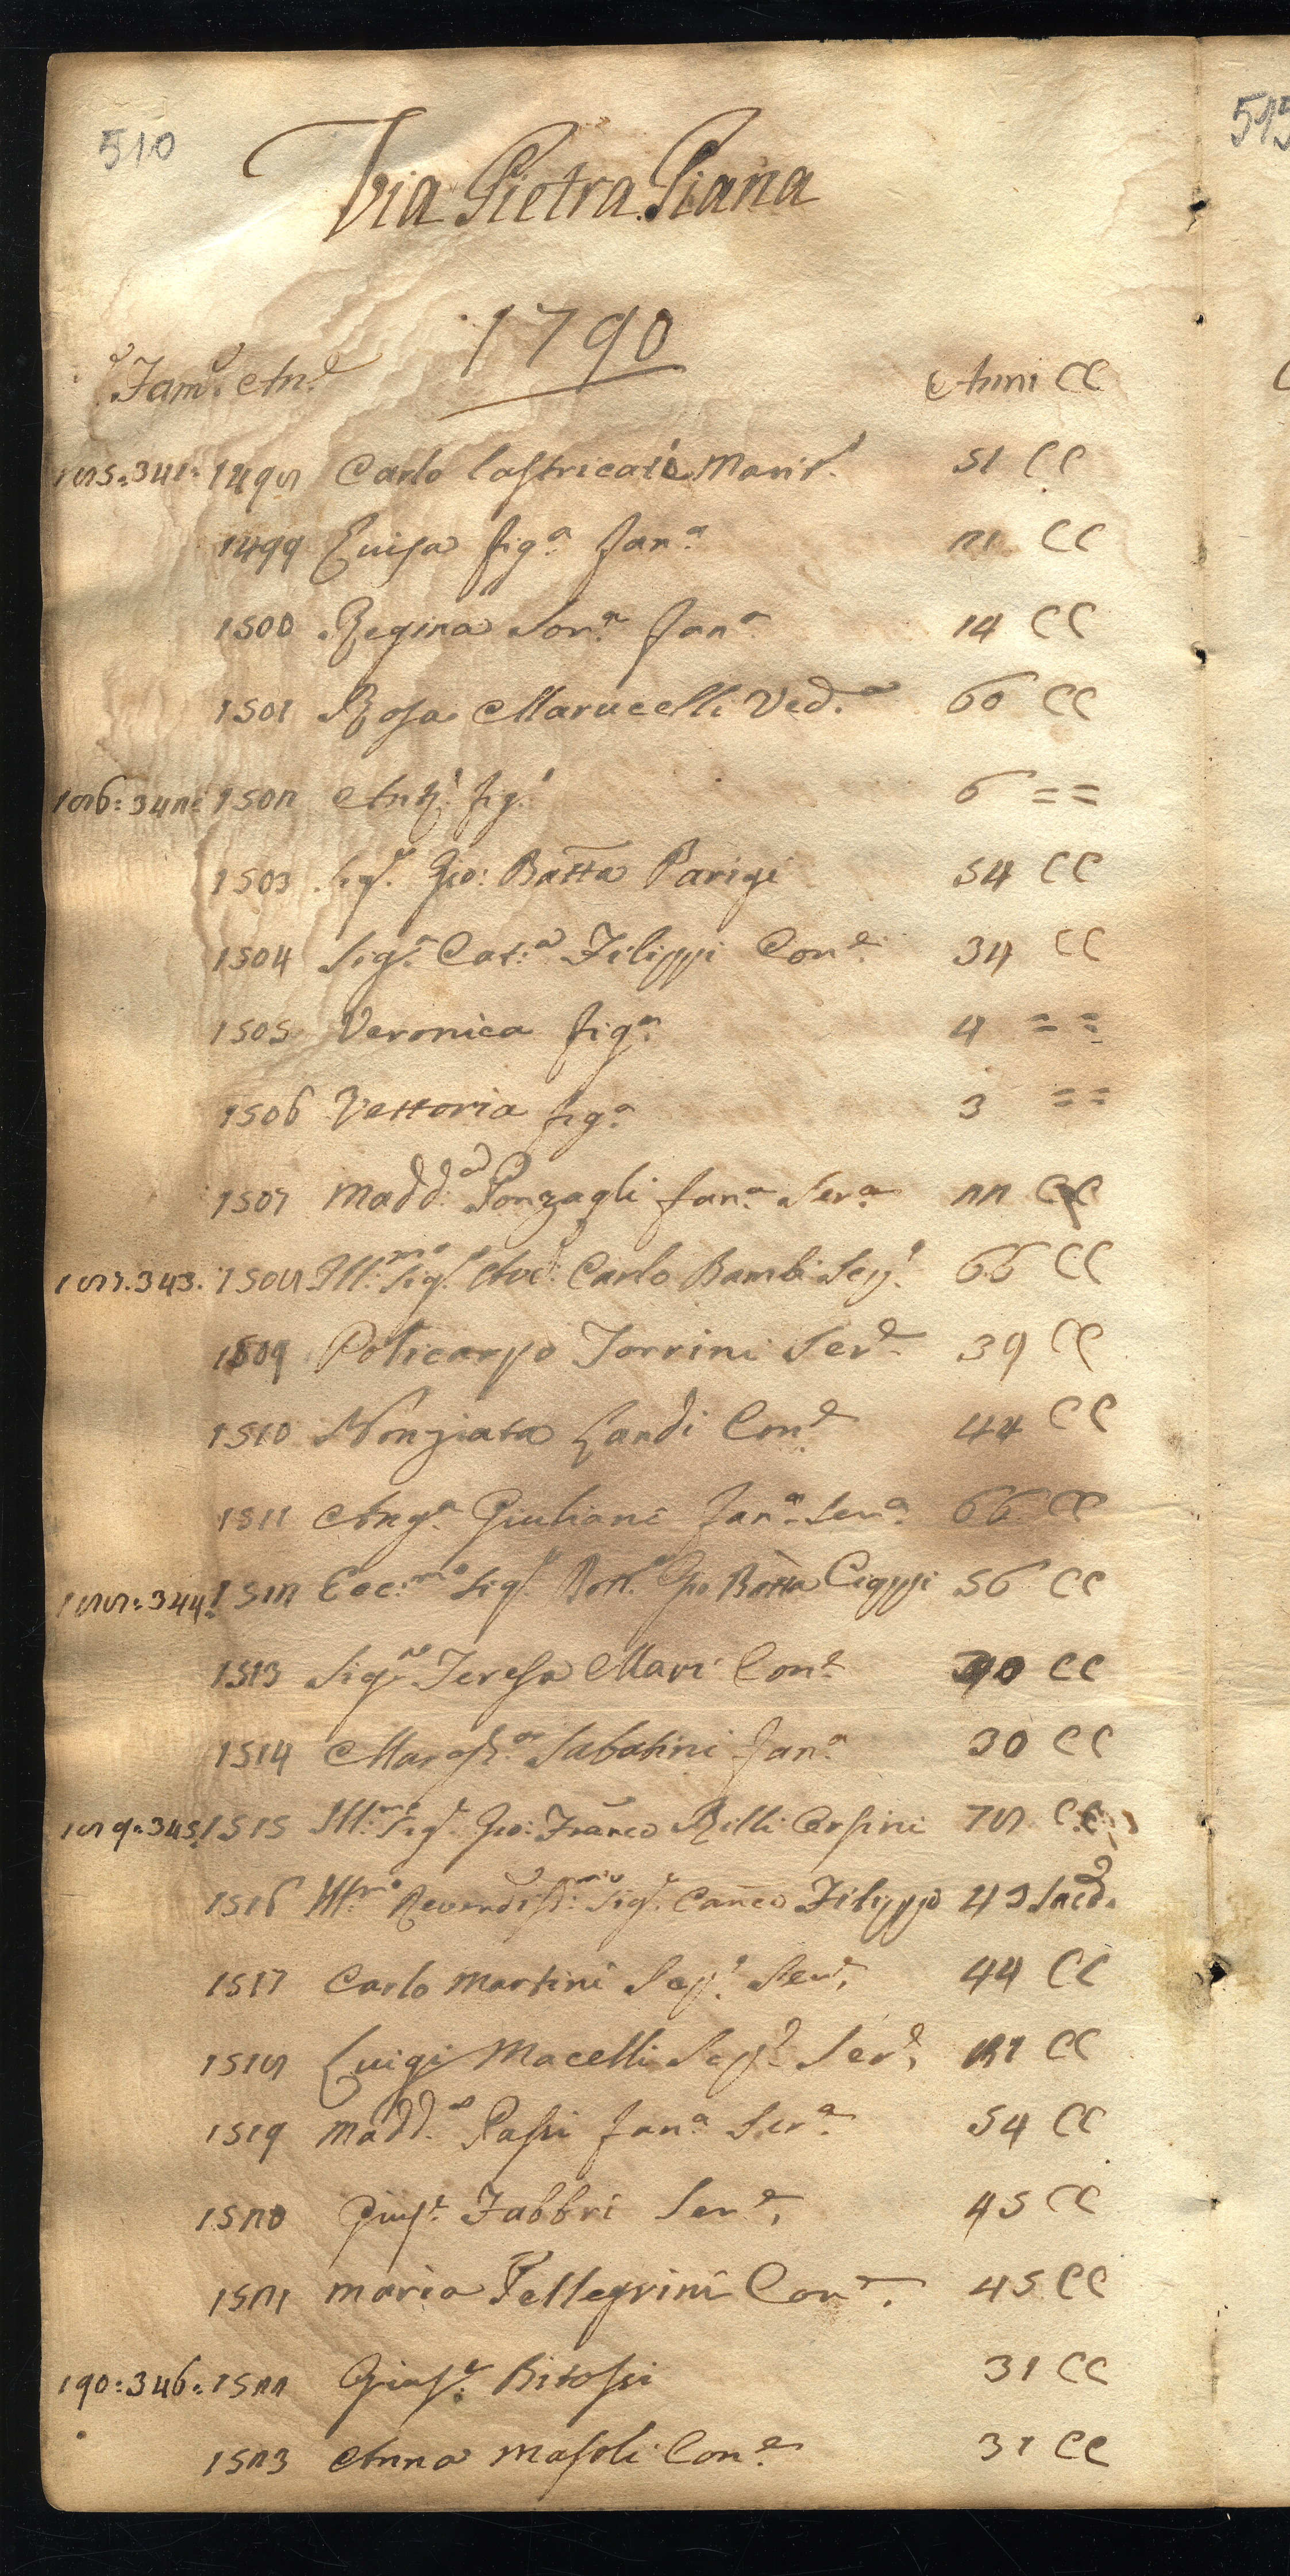 510
515
Via Pietra Piana
1790
Fam. An.e Anni CC
185:341: 1498 Carlo Lastricati Marit. 51 CC
1499 Luisa fig.a fan.a 21 CC
1500 Regina Sor.a fan.a 14 CC
1501 Rosa Marucelli Ved.a 60 CC
186:342: 1502 fig. 6 ==
1503 Sig.r Gio: Batta Parigi 54 CC
1504 Sig.a Cat.a Filippi Con.e 34 CC
1505 Veronica fig.a 4 ==
1506 Vettoria fig.a 3 ==
1507 Madd.a Ponzagli fan.a Ser.a 22 CC
187.343. 1508 Ill.mo Sig.r Avd: Carlo Bambi 66 CC
1509 Policarpo Torrini Ser.e 39 CC
1510 Nonziata Landi Con.e 44 CC
1511 Ang.a Giuliani fan.a Ser.a 66 CC
188:344: 1512 Ecc:mo Sig.r Dott. Gio Batta Cioppi 56 CC
1513 Sig.a Teresa Mari Con.e CC
1514 Margh.a Sabatini fan.a 30 CC
189:345: 1515 Ill.mo Sig.r Gio: Franco Billi 78 CC
1516 Ill.mo Reverdiss:mo Sig.r Canco Filippo 43 Sacd.
1517 Carlo Martini Ser.e 44 CC
1518 Luigi Macelli Ser.e CC
1519 Madd.a Passi fan.a Ser.a 54 CC
1520 Gius.e Fabbri Ser.e 45 CC
1521 Maria Pellegrini Con.e 45 CC
190:346: 1522 Gius.e Bitossi 31 CC
1523 Anna Masoli Con.e 31 CC